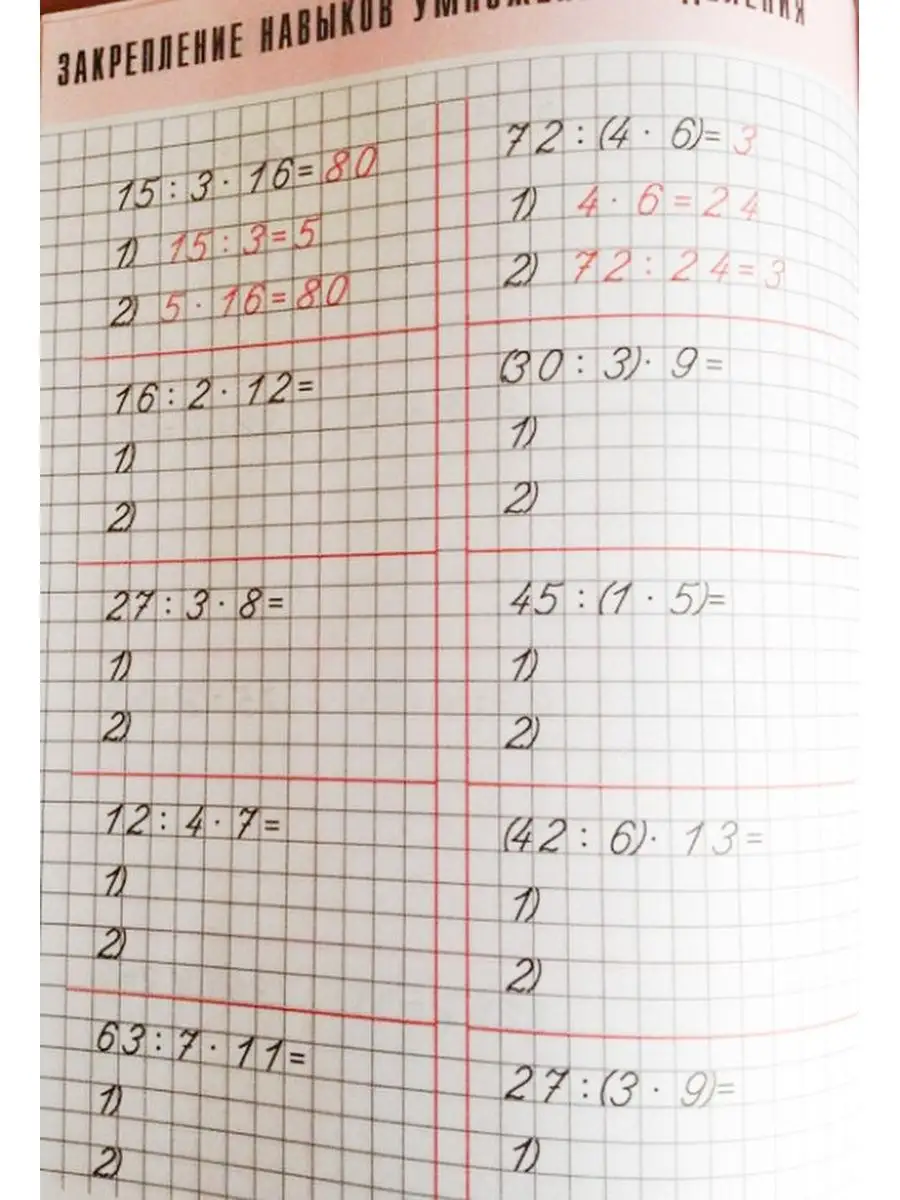 ЗАКРЕПЛЕНИЕ НАВЫКОВ
15 : 3 · 16 = 80
1) 15 : 3 = 5
2) 5 · 16 = 80
16 : 2 · 12 =
1)
2)
27 : 3 · 8 =
1)
2)
12 : 4 · 7 =
1)
2)
63 : 7 · 11 =
1)
2)
72 : (4 · 6) = 3
1) 4 · 6 = 24
2) 72 : 24 = 3
(30 : 3) · 9 =
1)
2)
45 : (1 · 5) =
1)
2)
(42 : 6) · 13 =
1)
2)
27 : (3 · 9) =
1)